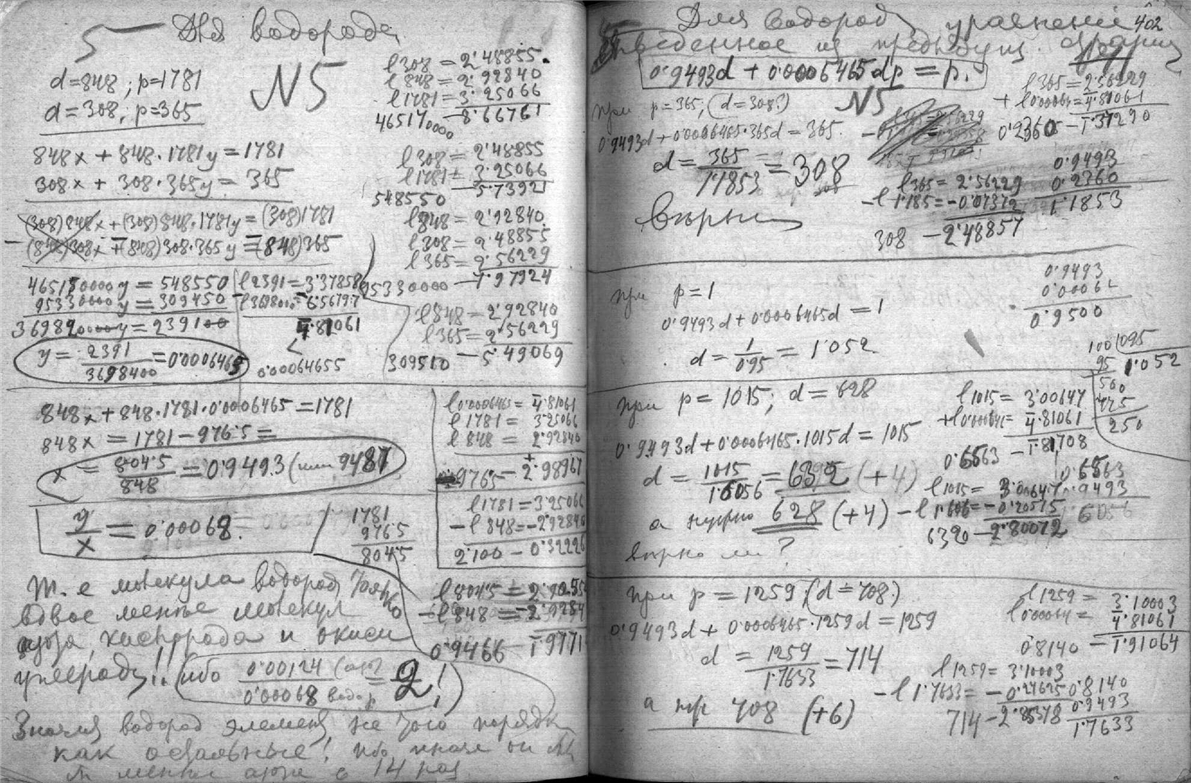 5 Для водорода
N5
d=848 ; p=1781
d=308, p=365
848x + 848·1781y = 1781
308x + 308·365y = 365
(308)848x+(308)848·1781y=(308)1781
−(848)308x+(848)308·365y=(848)365
46518 0000y = 548550
95330000y = 309450
36982 0000y = 239100
y = 2391/3698400 = 0'0006465
l2391=3'37858
6'56797
4'81061
0'00064655
l308=2'48855
l848=2'92840
l1781=3'25066
46517 0000 − 8'66761
l308=2'48855
l1781=3'25066
548550 − 5'73921
l848=2'92840
l308=2'48855
l365=2'56229
95330000 − 7'97924
l848=2'92840
l365=2'56229
309510 − 5'49069
848x + 848·1781·0'0006465 = 1781
848x = 1781 − 976'5 =
x = 804'5/848 = 0'9493 (или 9487
l0'0006465=4'81061
l1781=3'25066
l848=2'92840
9765 − 2'98967
y/x = 0'00068.
1781
976'5
804'5
l1781=3'25066
−l848=−2'92840
2'100 − 0'32226
l804'5=
−l848=
0'9466 − 1'9771
Т. е молекула водород только
вдвое менее молекул
азота, кислорода и окиси
углерода!! (ибо 0'00124 (азот)/0'00068 водор = 2!)
Значит водород элемент не того порядк
как остальные! ибо иначе он
менее азота в 14 раз
402
Для водород уравнение
выведенное из предыдущ.
0'9493d + 0'0006465dp = p.
N5
при p=365, (d=308?)
0'9493d+0'0006465·365d = 365
d = 365/1'1853 = 308
вѣрно
l365=2'56229
+l0'00064=4'81061
0'2360 − 1'37290
0'9493
0'2360
1'1853
l365=2'56229
−l1'185=−0'07372
308 − 2'48857
при p=1
0'9493d+0'0006465d = 1
d = 1/0'95 = 1'052
0'9493
0'0006
0'9500
100/095
95 1'052
500
475
250
при p = 1015; d = 628
0'9493d+0'0006465·1015d = 1015
d = 1015/1'6056 = 632 (+4)
а нужно 628 (+4)
вѣрно ли?
l1015=3'00647
+l0'00064=4'81061
0'6563 − 1'81708
0'6563
0'9493
1'6056
l1015= 3'00647
−l1'606=−0'20575
6320 − 2'80072
при p = 1259 (d=708)
0'9493d + 0'0006465·1259d = 1259
d = 1259/1'7633 = 714
а нуж 708 (+6)
l1259= 3'10003
l0'00064= 4'81061
0'8140 − 1'91064
l1259= 3'10003
−l1'7633=−0'24625
714−2'85378
0'8140
0'9493
1'7633